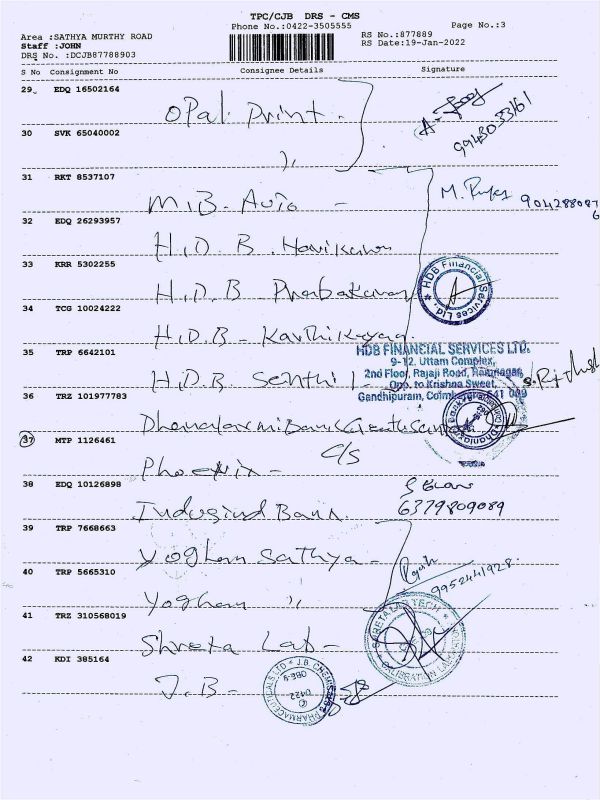 TPC/CJB DRS - CMS
Phone No.:0422-3505555
Page No.:3
Area :SATHYA MURTHY ROAD
RS No.:877889
Staff :JOHN
RS Date:19-Jan-2022
DRS No. :DCJB87788903
S No Consignment No Consignee Details Signature
29 EDQ 16502164
Opal Print -
30 SVK 65040002
99430 33161
31 RKT 8537107
M.B. Auto -
32 EDQ 26293957
H.D.B. Harikaran
33 KRR 5302255
H.D.B Prabakaran
HDB Financial Services Ltd.
34 TCG 10024222
H.D.B - Karthikeyan
35 TRP 6642101
HDB FINANCIAL SERVICES LTD.
9-12, Uttam Complex,
2nd Floor, Rajaji Road, Ramnagar,
Opp. to Krishna Sweet,
Gandhipuram, Coimbatore-641 009
H.D.B. Senthil -
36 TRZ 101977783
37 MTP 1126461
Phoenix - C/S
38 EDQ 10126898
6379809089
Indusind Bank.
39 TRP 7668663
Yoghan Sathya -
40 TRP 5665310
9952441928
Yoghan "
41 TRZ 310568019
SHRETA LAB TECH
CALIBRATION LABORATORY
Shreta Lab -
42 KDI 385164
J.B -
J.B. CHEMICALS & PHARMACEUTICALS LTD